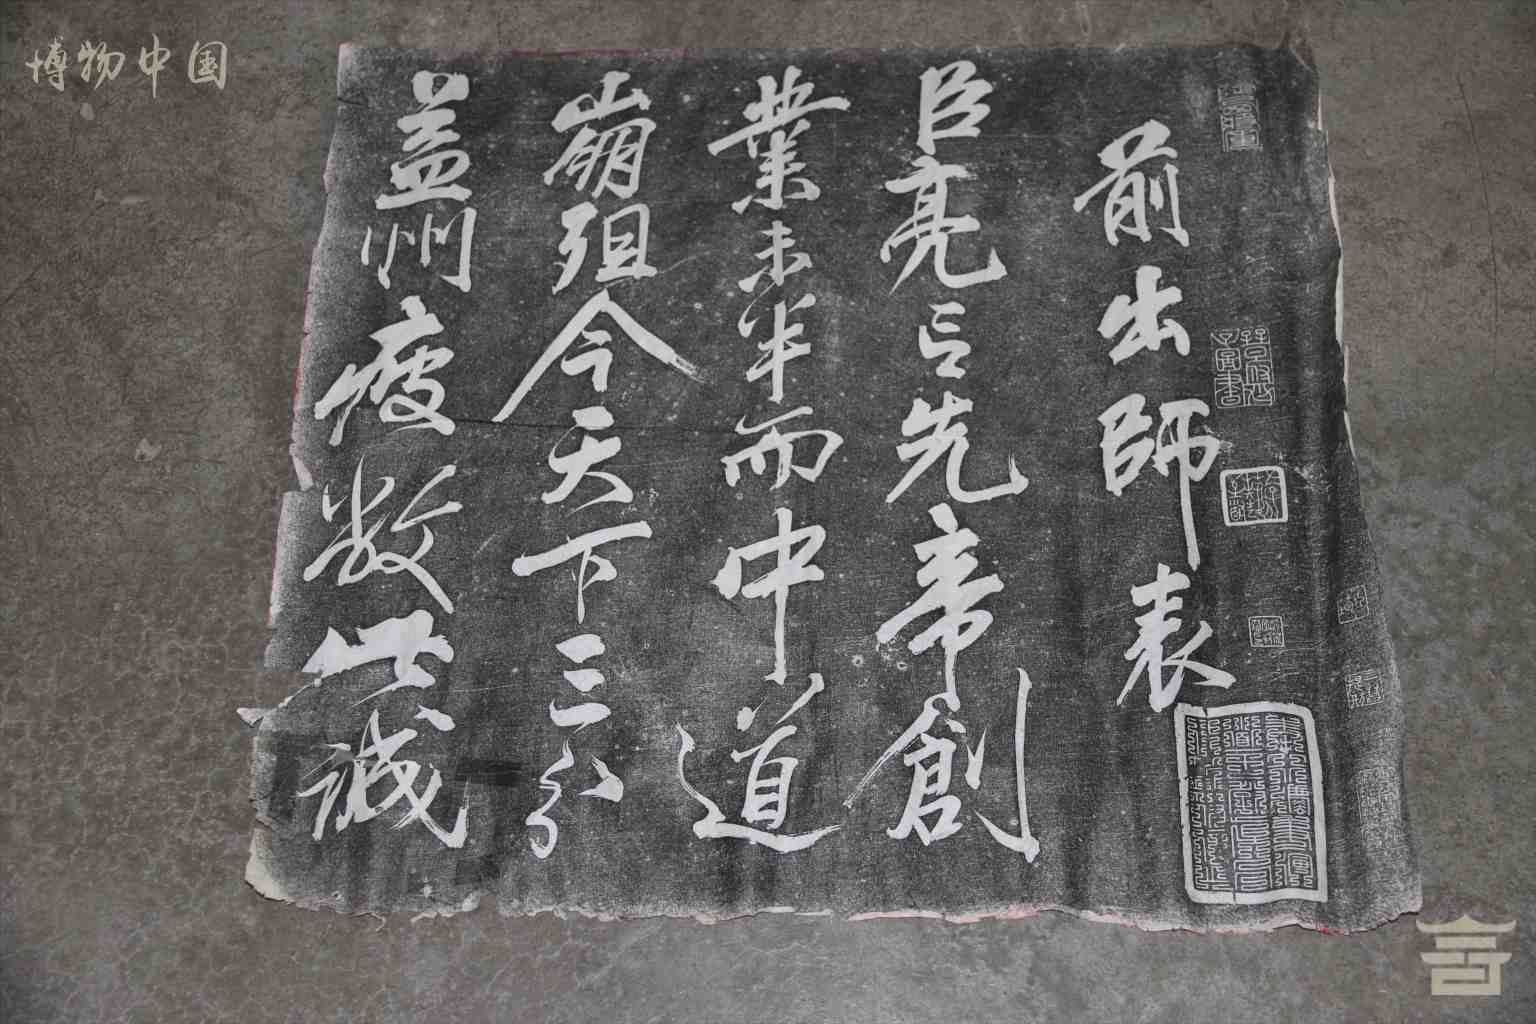 博物中国
前出師表
臣亮言先帝創
業未半而中道
崩殂今天下三分
益州疲敝此誠